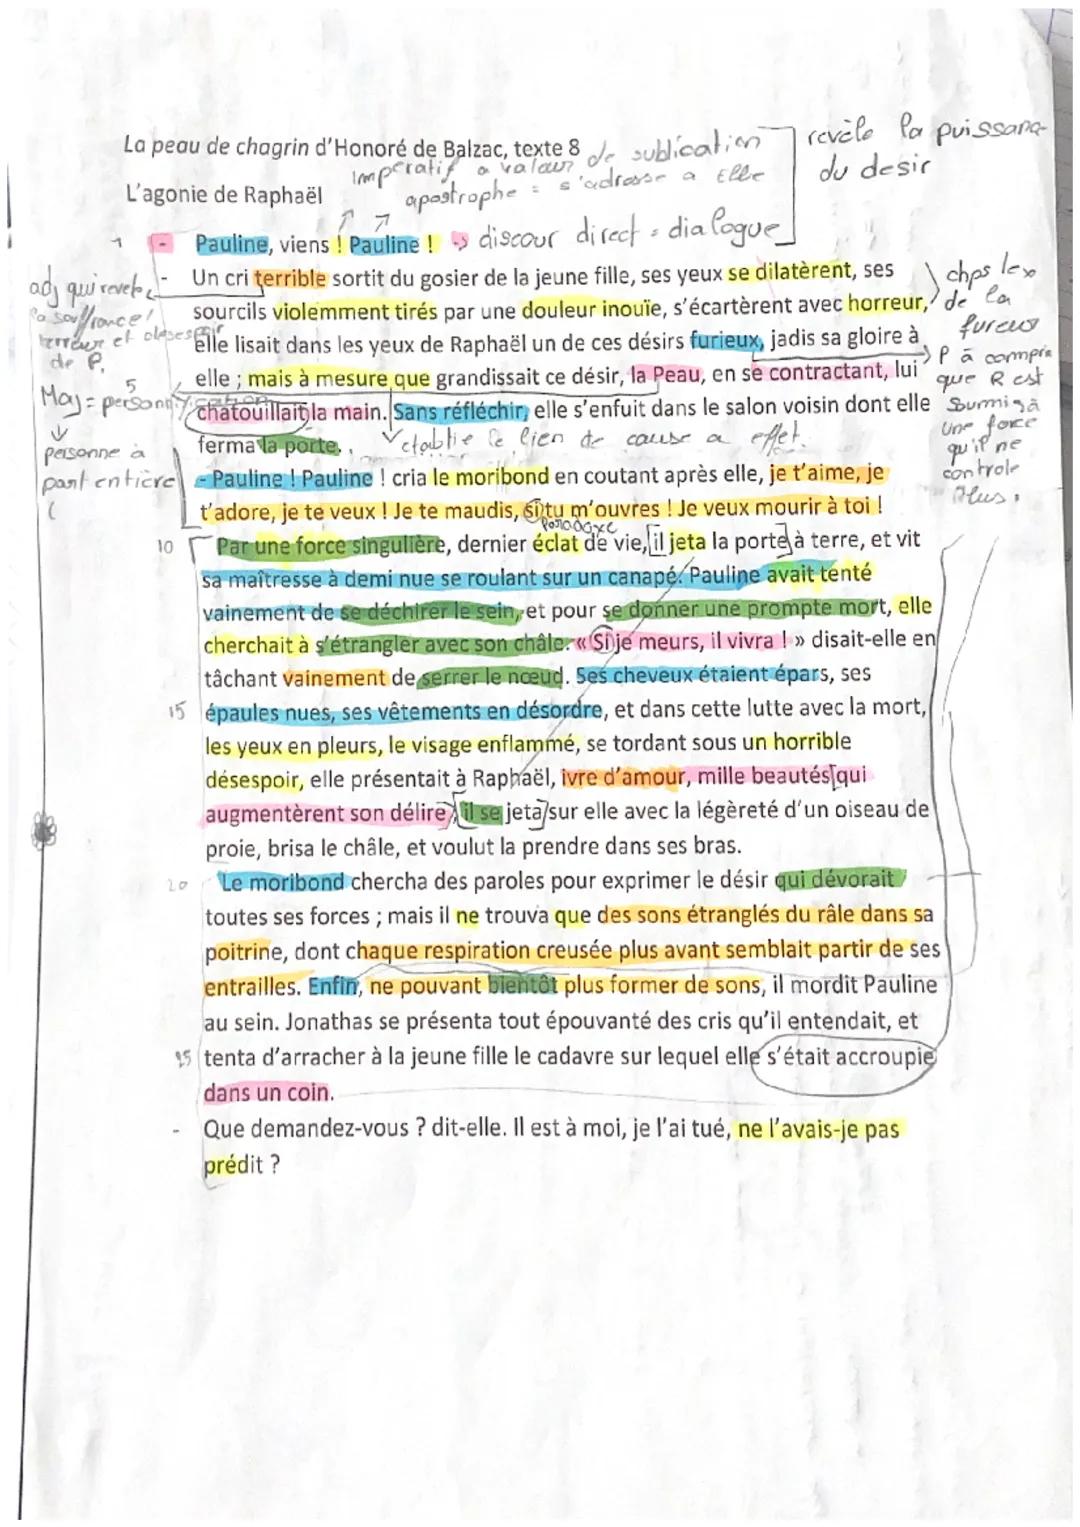 La peau de chagrin d'Honoré de Balzac, texte 8
revèle la puissance
du desir
Imperatif a valeur de sublication
L'agonie de Raphaël
apostrophe = s'adresse a Elle
1 - Pauline, viens ! Pauline ! → discour direct = dialogue
- Un cri terrible sortit du gosier de la jeune fille, ses yeux se dilatèrent, ses
sourcils violemment tirés par une douleur inouïe, s'écartèrent avec horreur,
elle lisait dans les yeux de Raphaël un de ces désirs furieux, jadis sa gloire à
5 elle ; mais à mesure que grandissait ce désir, la Peau, en se contractant, lui
chatouillait la main. Sans réfléchir, elle s'enfuit dans le salon voisin dont elle
ferma la porte.
établie le lien de cause a effet.
adj qui revele
la souffrance /
terreur et desespoir
de P.
Maj = personnification
personne à
part entière
chps lex
de la
fureur
P à compris
que R est
soumis à
une force
qu'il ne
controle
plus.
- Pauline ! Pauline ! cria le moribond en coutant après elle, je t'aime, je
t'adore, je te veux ! Je te maudis, si tu m'ouvres ! Je veux mourir à toi !
Paradoxe
10 Par une force singulière, dernier éclat de vie, il jeta la porte à terre, et vit
sa maîtresse à demi nue se roulant sur un canapé. Pauline avait tenté
vainement de se déchirer le sein, et pour se donner une prompte mort, elle
cherchait à s'étrangler avec son châle. « Si je meurs, il vivra ! » disait-elle en
tâchant vainement de serrer le nœud. Ses cheveux étaient épars, ses
15 épaules nues, ses vêtements en désordre, et dans cette lutte avec la mort,
les yeux en pleurs, le visage enflammé, se tordant sous un horrible
désespoir, elle présentait à Raphaël, ivre d'amour, mille beautés qui
augmentèrent son délire ; il se jeta sur elle avec la légèreté d'un oiseau de
proie, brisa le châle, et voulut la prendre dans ses bras.
20 Le moribond chercha des paroles pour exprimer le désir qui dévorait
toutes ses forces ; mais il ne trouva que des sons étranglés du râle dans sa
poitrine, dont chaque respiration creusée plus avant semblait partir de ses
entrailles. Enfin, ne pouvant bientôt plus former de sons, il mordit Pauline
au sein. Jonathas se présenta tout épouvanté des cris qu'il entendait, et
25 tenta d'arracher à la jeune fille le cadavre sur lequel elle s'était accroupie
dans un coin.
- Que demandez-vous ? dit-elle. Il est à moi, je l'ai tué, ne l'avais-je pas
prédit ?